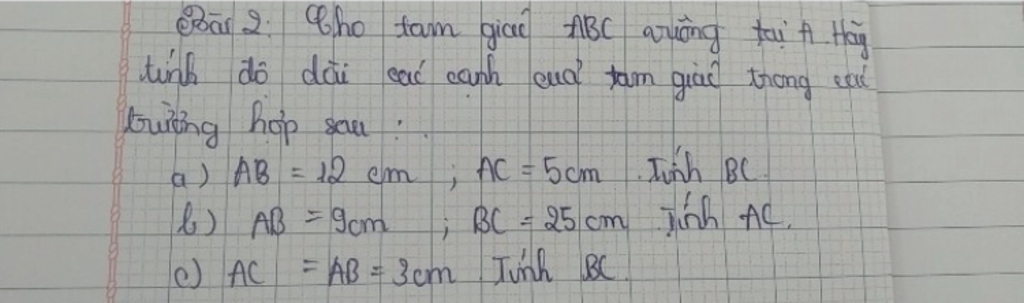 Bài 2. Cho tam giác ABC vuông tại A. Hãy
tính độ dài các cạnh của tam giác trong các
trường hợp sau :
a) AB = 12 cm ; AC = 5cm . Tính BC.
b) AB = 9cm ; BC = 25 cm Tính AC.
c) AC = AB = 3cm Tính BC